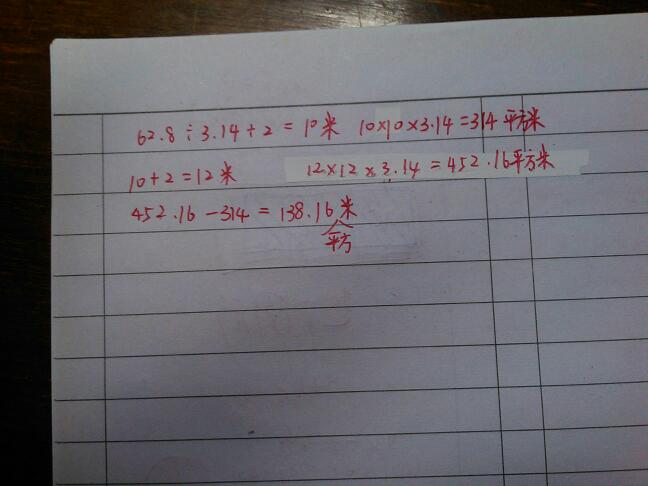 62.8÷3.14÷2=10米 10×10×3.14=314平方米
10+2=12米 12×12×3.14=452.16平方米
452.16-314=138.16米
平方